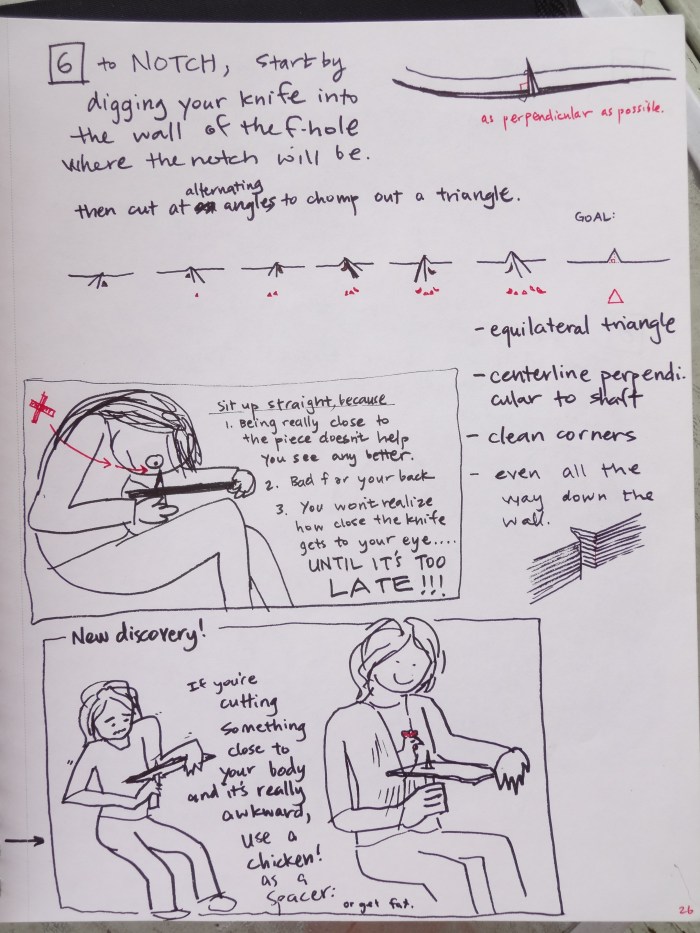 6 to NOTCH, start by
digging your knife into
the wall of the f-hole
where the notch will be.
as perpendicular as possible.
alternating
then cut at angles to chomp out a triangle.
GOAL:
- equilateral triangle
- centerline perpendi-
cular to shaft
- clean corners
- even all the
way down the
wall.
sit up straight, because
1. Being really close to
the piece doesn't help
you see any better.
2. Bad for your back
3. You won't realize
how close the knife
gets to your eye....
UNTIL IT'S TOO
LATE!!!
New discovery!
If you're
cutting
something
close to
your body
and it's really
awkward,
use a
chicken!
as a
spacer.
or get fat.
26